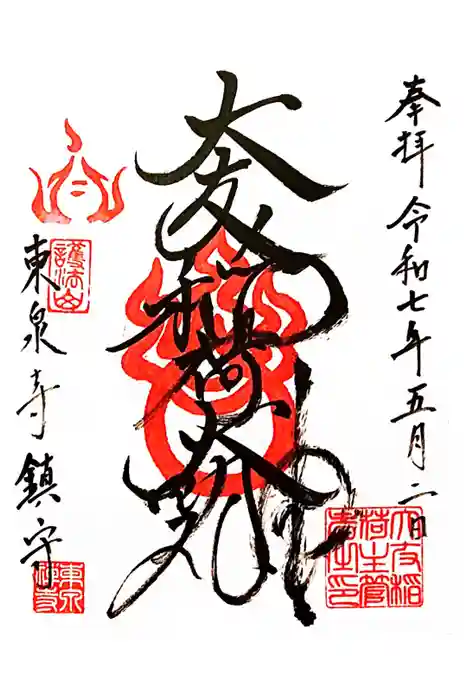 奉拝 令和七年五月二日
大友稲荷大明神
護法山
東泉寺鎮守
東泉禅寺